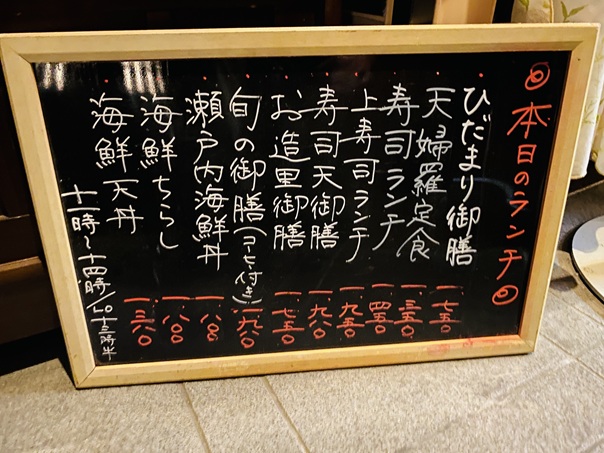 ◎本日のランチ◎
ひだまり御膳 一七五〇
天婦羅定食 一三五〇
寿司ランチ 一四五〇
上寿司ランチ 一九五〇
寿司天御膳 一九八〇
お造里御膳 一七五〇
旬の御膳(コーヒ付き) 一九八〇
瀬戸内海鮮丼 一八〇〇
海鮮ちらし 一八〇〇
海鮮天丼 一三八〇
十一時〜十四時/LO十三時半